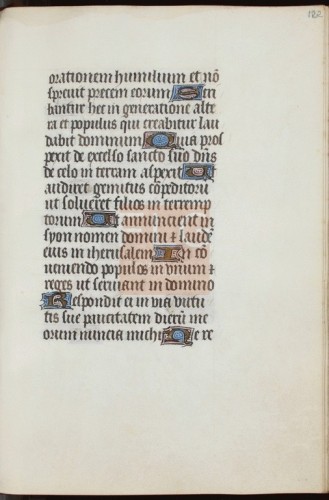 182
orationem humilium et nō
spreuit precem eorum Scri
bantur hec in generatione alte
ra et populus qui creabitur lau
dabit dominum Quia pros
pexit de excelso sancto suo dn̄s
de celo in terram aspexit Ut
audiret gemitus cōpeditorū
ut solueret filios interremp
torum Ut annuncient in
syon nomen domini ⁊ laudē
eius in iherusalem In cō
ueniendo populos in vnum ⁊
reges ut seruiant domino
Respondit ei in via virtu
tis sue paucitatem dierū me
orum nuncia michi Ne re